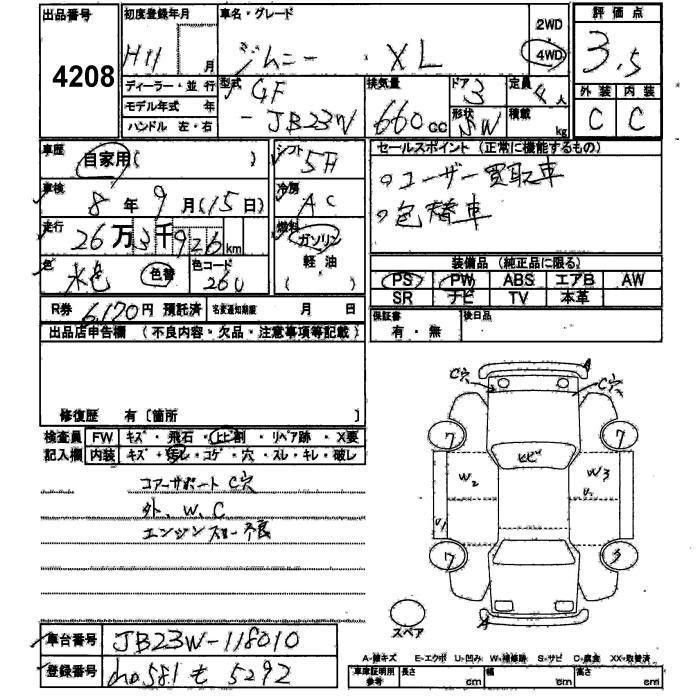 出品番号 4208
初度登録年月 H11 月
車名・グレード ジムニー ・ XL
2WD 4WD
評価点 3.5
外装 C 内装 C
ディーラー・並行
モデル年式 年
ハンドル 左・右
型式 GF - JB23W
排気量 660 cc
ドア 3
形状 SW
定員 4人
積載 kg
車歴 自家用( )
シフト 5F
車検 8年9月(15日)
冷房 AC
走行 26万3千926km
燃料 ガソリン 軽油 ( )
色 水色 色替 色コード 26U
R券 6,170円 預託済 名変通知期限 月 日
セールスポイント (正常に機能するもの)
○ユーザー買取車
○色替車
装備品 (純正品に限る)
PS PW ABS エアB AW
SR ナビ TV 本革
保証書 有・無 後日品
出品店申告欄 (不良内容・欠品・注意事項等記載)
修復歴 有〔箇所 〕
検査員 FW キズ・飛石・ヒビ割・リペア跡・X要
記入欄 内装 キズ・汚レ・コゲ・穴・スレ・キレ・破レ
コアーサポート C穴
外、W、C
エンジンスロー不良
車台番号 JB23W-118010
登録番号 581 も 5292
A
C穴 C穴
7 7
ヒビ
W2 W3
U1 U1
7 3
スペア
A-擦キズ E-エクボ U-凹み W-補修跡 S-サビ C-腐食 XX-取替済
車庫証明用参考 長さ cm 幅 cm 高さ cm